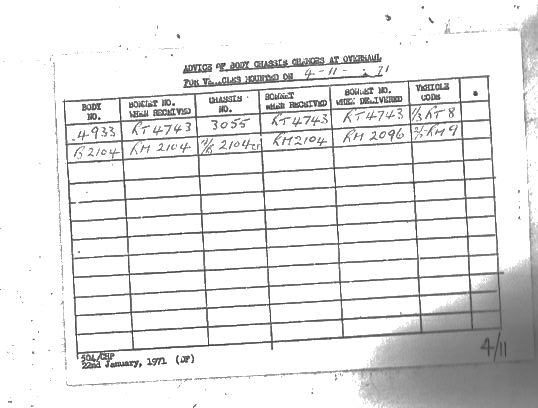 ADVICE OF BODY CHASSIS CHANGES AT OVERHAUL
FOR VEHICLES MOUNTED ON 4-11-71
BODY NO. BONNET NO. WHEN RECEIVED CHASSIS NO. BONNET WHEN RECEIVED BONNET NO. WHEN DELIVERED VEHICLE CODE
4933 RT4743 3055 RT4743 RT4743 2/3 RT8
B2104 RM 2104 2104 RM2104 RM 2096 RM9
504/CHP
22nd January, 1971 (DP)
4/11